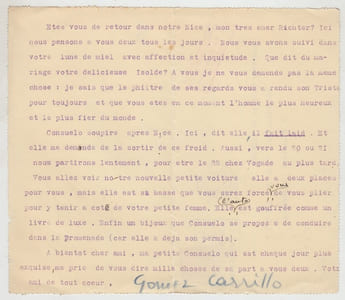 Etes vous de retour dans notre Nice, mon tres cher Richter? Ici
nous pensons a vous deux tous les jours. Nous vous avons suivi dans
votre lune de miel avec affection et inquietude. Que dit du ma-
riage votre delicieuse Isolde? A vous je ne vous demande pas la meme
chose: je sais que le philtre de ses regards vous a rendu son Trista
pour toujours et que vous etes en ce moment l'homme le plus heureux
et le plus fier du monde.
Consuelo soupire apres Nice. Ici, dit elle, il fait laid. Et
elle me demande de la sortir de ce froid. Aussi, vers le 20 ou 21
nous partirons lentement, pour etre le 28 chez Vogade au plus tard.
Vous allez voir notre nouvelle petite voiture elle a deux places
pour vous, mais elle est si basse que vous serez force de vous plier
pour y tenir a coté de votre petite femme. (l'auto!!) Elle est gouffrée comme un
livre de luxe. Enfin un bijoux que Consuelo se propose de conduire
dans la Promenade (car elle a deja son permis).
A bientot cher ami, ma petite Consuelo qui est chaque jour plus
exquise, me prie de vous dire mille choses de sa part a vous deux. Votr
ami de tout coeur.
Gomez Carrillo